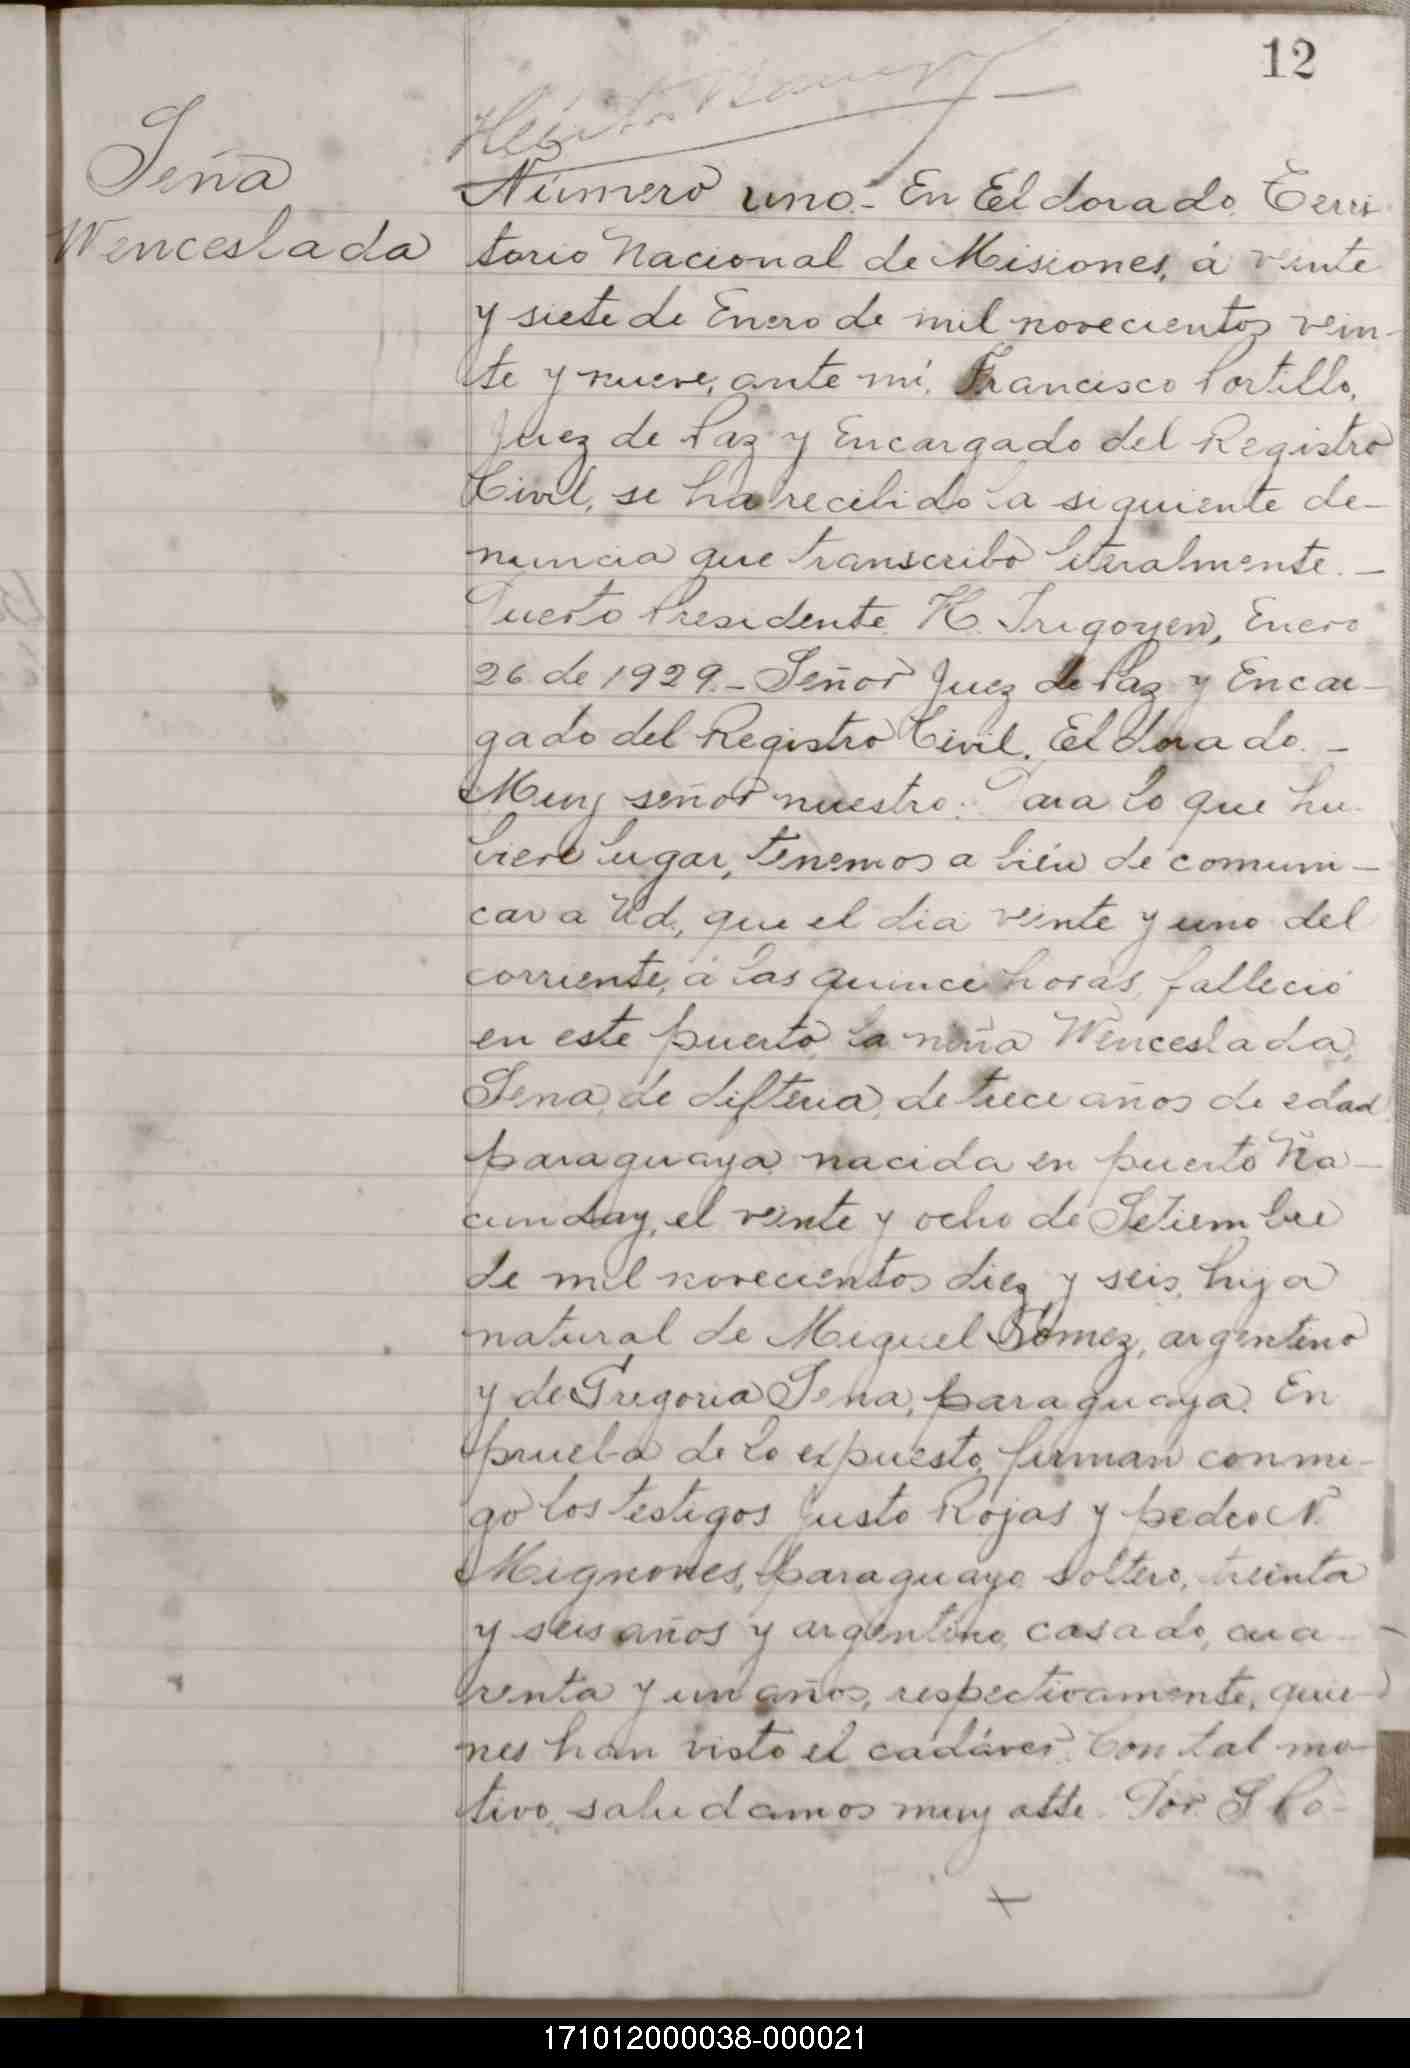 12
Seña
Wenceslada
Número uno.- En Eldorado. Terri-
torio Nacional de Misiones, á veinte
y siete de Enero de mil novecientos vein-
te y nueve, ante mí, Francisco Portillo,
Juez de Paz y Encargado del Registro
Civil, se ha recibido la siguiente de-
nuncia que transcribo literalmente.-
Puerto Presidente H. Irigoyen, Enero
26 de 1929.- Señor Juez de Paz y Encar-
gado del Registro Civil. Eldorado.-
Muy señor nuestro: Para lo que hu-
biere lugar, tenemos a bién de comuni-
car a Ud., que el dia veinte y uno del
corriente, á las quince horas, falleció
en este puerto, la niña Wenceslada,
Sena, de difteria, de trece años de edad,
paraguaya, nacida en puerto Ña-
cunday, el veinte y ocho de Setiembre
de mil novecientos diez y seis, hija
natural de Miguel Gómez, argentino
y de Gregoria Sena, paraguaya. En
prueba de lo expuesto, firman conmi-
go los testigos Justo Rojas y pedro N.
Mignones, paraguayo soltero, treinta
y seis años y argentino, casado, cua-
renta y un años, respectivamente, quie-
nes han visto el cadáver. Con tal mo-
tivo, saludamos muy atte. Por. S Po-
171012000038-000021